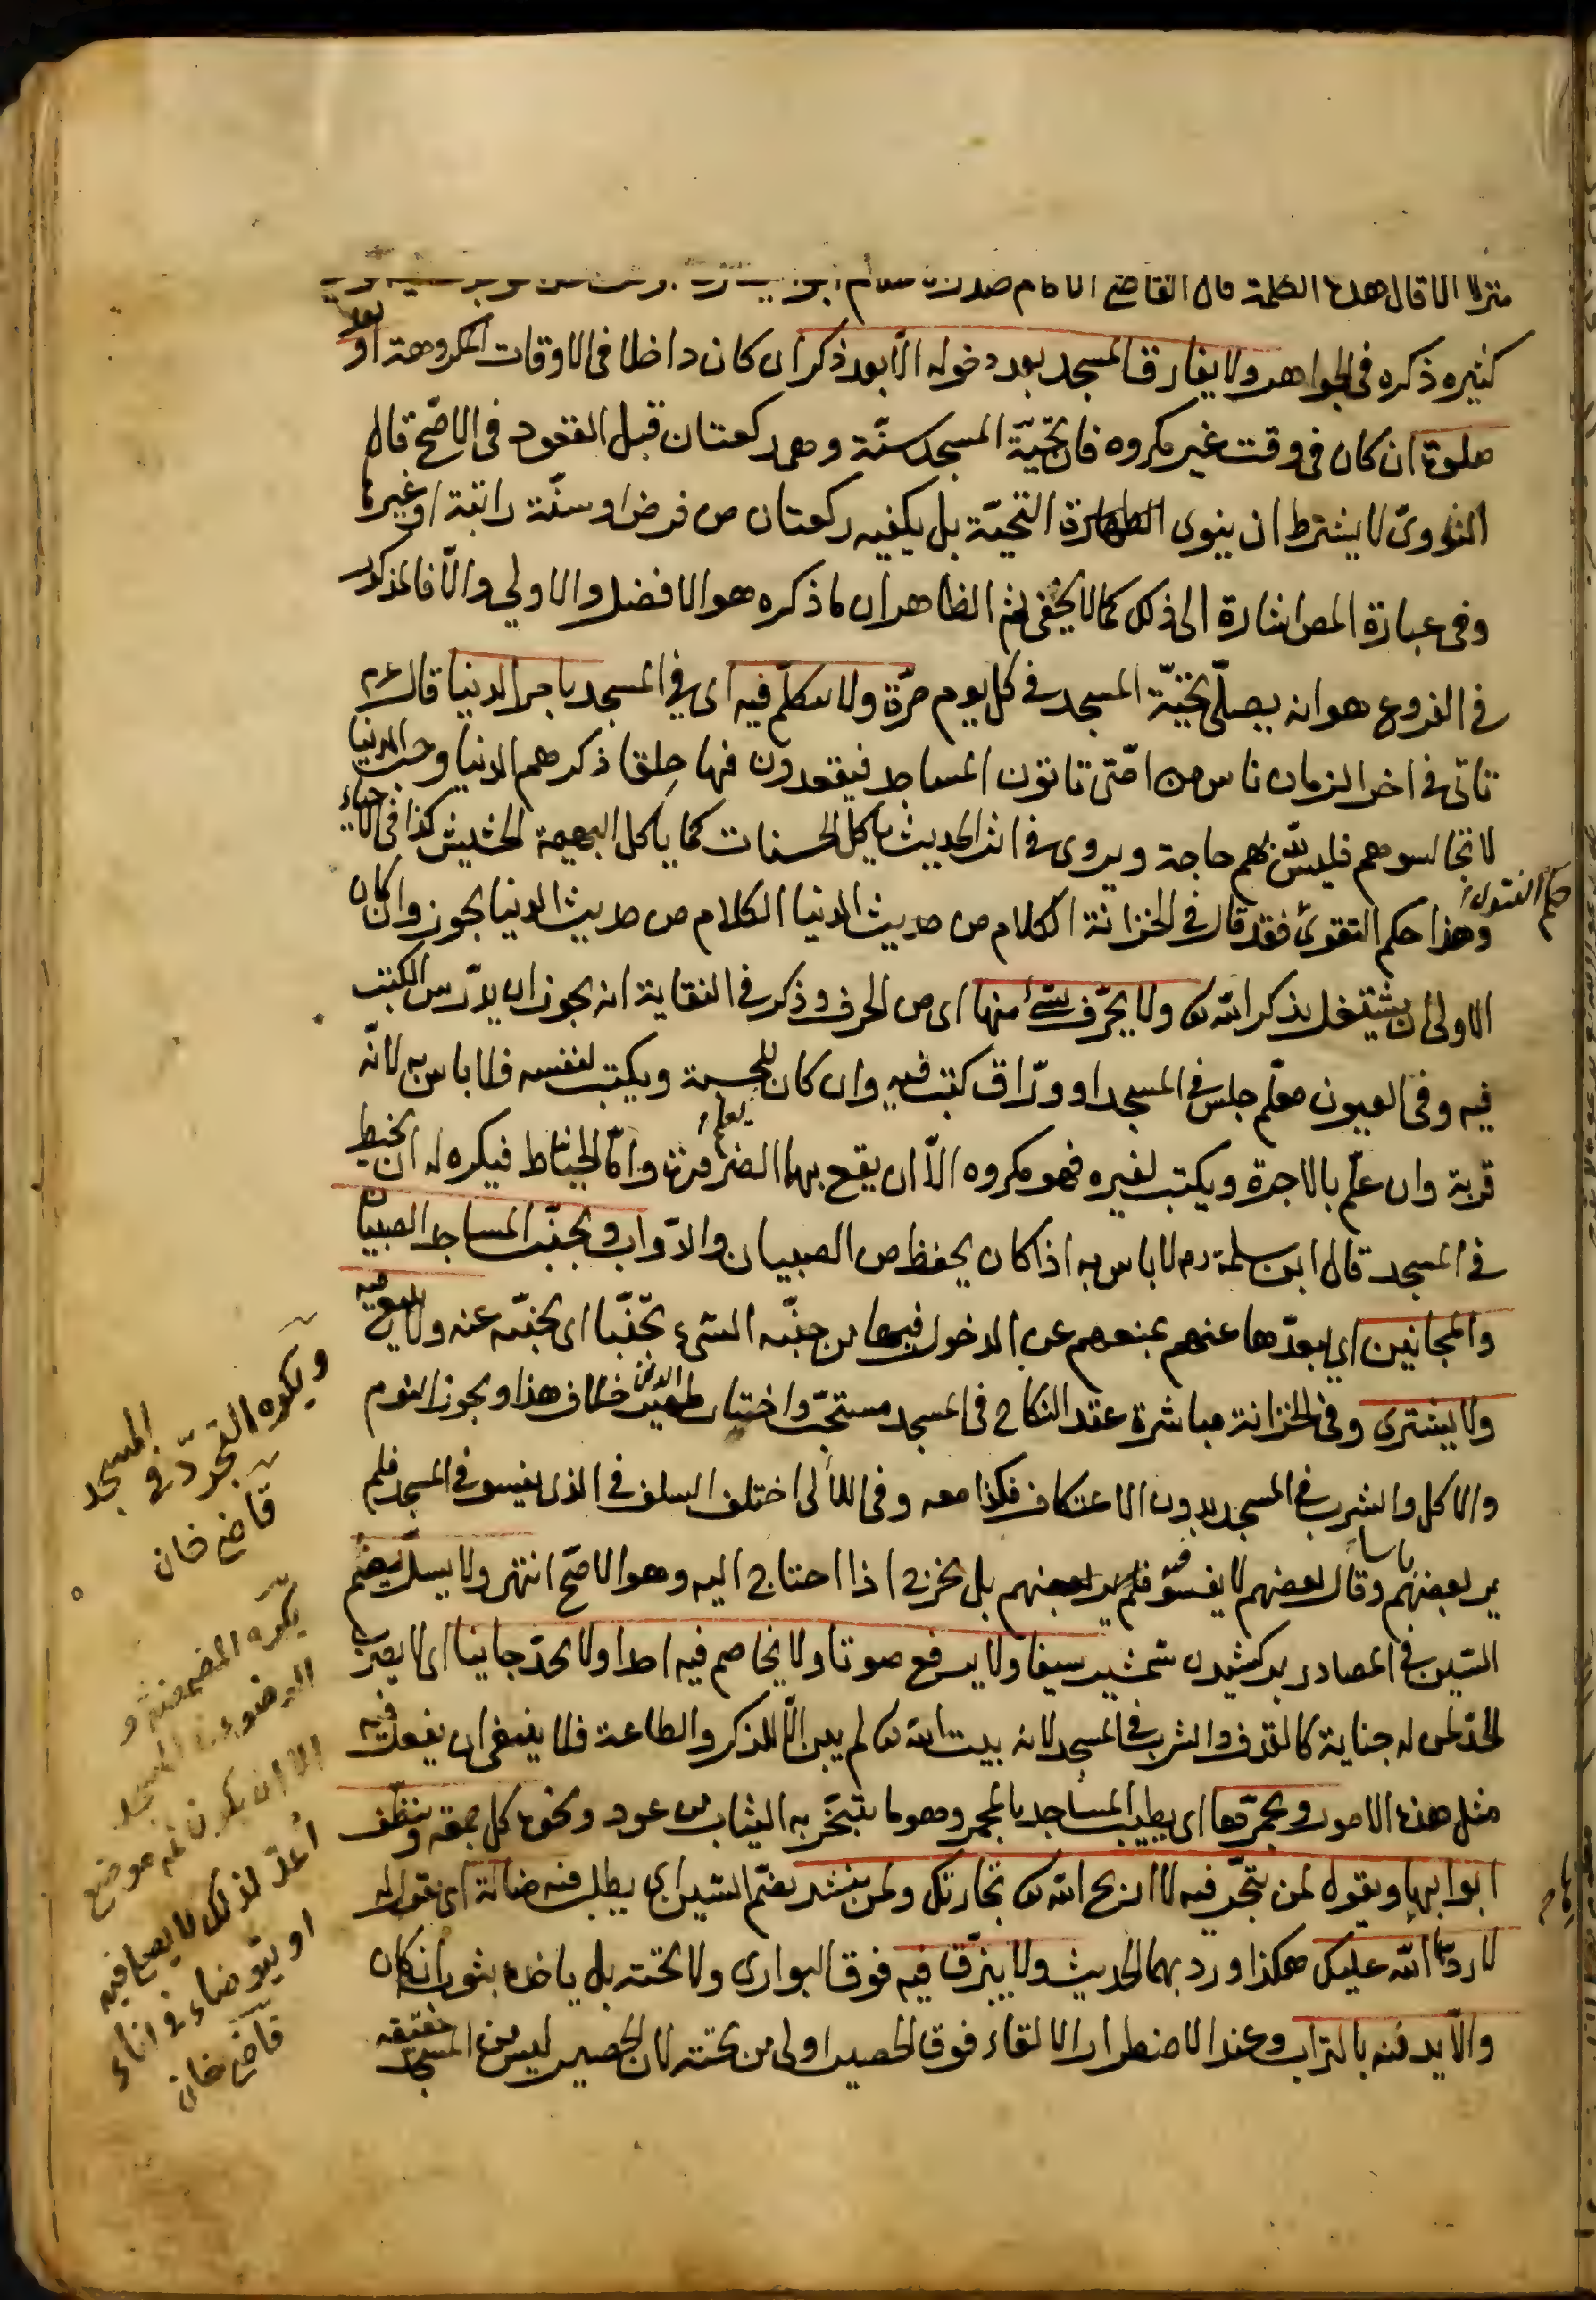 منزلا الا قال هذه الكلمة قال القاضي الامام صدر
كثيره ذكره في الجواهر ولا يفارق المسجد بعد دخوله الّا بعد ذكر ان كان داخلا في الاوقات المكروهة او بعد
صلوة ان كان في وقت غير مكروه فان تحيّة المسجد سنّة وهى ركعتان قبل القعود في الاصحّ قال
النووىّ لا يشترط ان ينوى التحيّة بل يكفيه ركعتان من فرض او سنّة راتبة او غيرها
وفى عبارة المص اشارة الى ذلك كما لا يخفى ثم الظاهر ان ما ذكره هو الافضل والاولى والّا فالمذكور
في الفروع هو انه يصلّى تحيّة المسجد في كل يوم مرّة ولا يتكلّم فيه اى في المسجد بامر الدنيا قال عم
تاتى في اخر الزمان ناس من امّتى تاتون المساجد فيقعدون فيها حلقا ذكرهم الدنيا وحب الدنيا
لا تجالسوهم فليس لله بهم حاجة ويروى في اثر الحديث ياكل الحسنات كما ياكل البهيمة الحشيش كذا في الاحياء
وهذا حكم التقوى فقد قال في الخزانة الكلام من حديث الدنيا الكلام من حديث الدنيا يجوز وان كان
حكم الفتوى
الاولى ان يشتغل بذكر الله تع ولا يحرّف بشئ منها اى من الحرف وذكر في النقاية انه يجوز ان يدرّس الكتب
فيه وفى العيون معلّم جلس في المسجد او ورّاق كتب فيه وان كان للحسبة ويكتب لنفسه فلا باس به لانّه
قربة وان علّم بالاجرة ويكتب لغيره فهو مكروه الّا ان يقع بهما الضرورة وامّا الخيّاط فيكره له ان يخيط
في المسجد قال ابن سلمة رح لا باس به اذا كان يحفظ من الصبيان والدوّاب ويجنّب المساجد الصبيان
والمجانين اى يبعدّها عنهم بمنعهم عن الدخول فيها من جنّبه الشىء تجنّبا اى تجنّبه عنه ولا يبيع فيه
ولا يشترى وفى الخزانة مباشرة عقد النكاح في المسجد مستحبّ واختيار ظهير الدين خلاف هذا ويجوز النوم
والاكل والشرب في المسجد بدون الاعتكاف فكذا معه وفى اللألى اختلف السلف في الذى يفسو في المسجد فلم
ير بعضهم باسا وقال بعضهم لا يفسو فيه بل يخرج اذا احتاج اليه وهو الاصحّ انتهى ولا يسلّ بضم
السّين في المصادر بركشيدن شمشير سيفا ولا يرفع صوتا ولا يخاصم فيه احدا ولا يحدّ جانيا اى لا يضرب
الحدّ لمن له جناية كالقذف والشرب في المسجد لانه بيت الله تع لم يبن الّا للذكر والطاعة فلا ينبغى ان يفعل فيه
مثل هذه الامور ويجمّرها اى يطيب المساجد بالمجمر وهو ما يتبخّر به الثياب من عود ونحوه كل جمعة وينظّف
ابوابها ويقول لمن يتجّر فيه لا اربح الله تع تجارتك ولمن ينشد بضمّ الشين اى يطلب فيه ضالّة اى يقول له
لا ردّها الله عليك هكذا ورد بهما الحديث ولا يبزّق فيه فوق البوارى ولا تحته بل ياخذه بثوبه ان كان
والّا يدفنه بالتراب وعند الاضطرار الالقاء فوق الحصير اولى من تحته لان الحصير ليس من المسجد حقيقة
ويكره التجرّد في المسجد
قاضى خان
يكره المضمضة و
الوضوء في المسجد
الا ان يكون ثم موضع
أعدّ لذلك لا يصلى فيه
او يتوضاء في اناء
قاضى خان